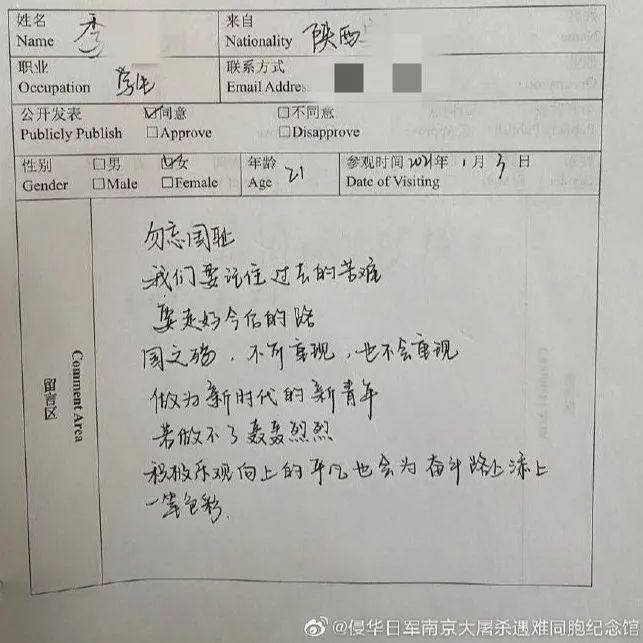 姓名 李 来自 陕西
Name Nationality
职业 学生 联系方式
Occupation Email Address
公开发表 ☑同意 □不同意
Publicly Publish □Approve □Disapprove
性别 □男 ☑女 年龄 21 参观时间 2021年 1 月 3 日
Gender □Male □Female Age Date of Visiting
留言区 Comment Area
勿忘国耻
我们要记住过去的苦难
要走好今后的路
国之殇,不可重现,也不会重现
做为新时代的新青年
若做不了轰轰烈烈
积极乐观向上的平凡也会为奋斗路上添上
一笔色彩.
@侵华日军南京大屠杀遇难同胞纪念馆